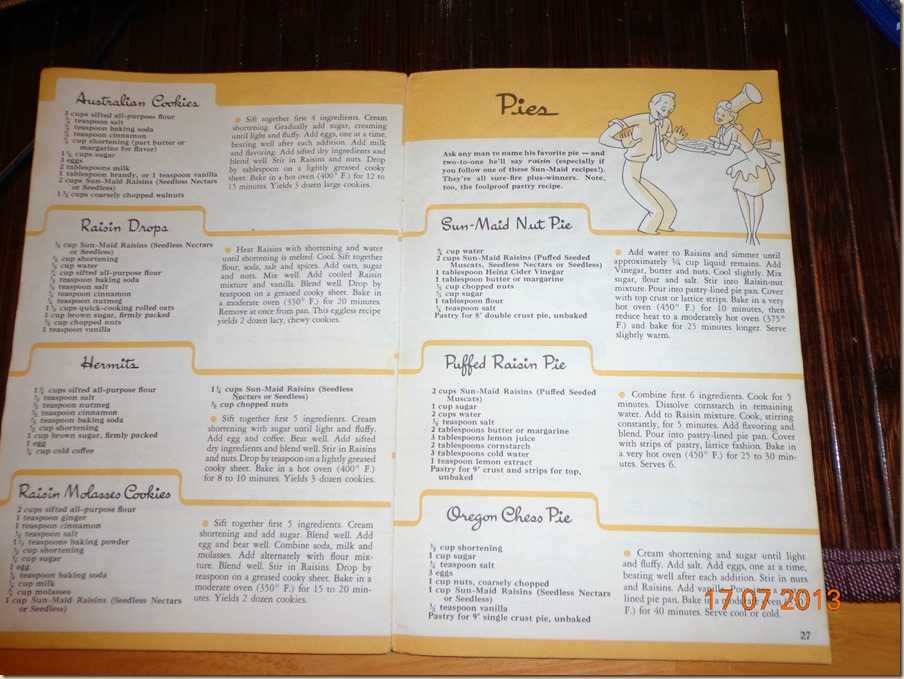 Australian Cookies
3 cups sifted all-purpose flour
teaspoon salt
teaspoon baking soda
teaspoon cinnamon
cup shortening (part butter or
margarine for flavor)
cups sugar
3 eggs
2 tablespoons milk
1 tablespoon brandy, or 1 teaspoon vanilla
2 cups Sun-Maid Raisins (Seedless Nectars
or Seedless)
cups coarsely chopped walnuts
Sift together first 4 ingredients. Cream
shortening. Gradually add sugar, creaming
until light and fluffy. Add eggs, one at a time,
beating well after each addition. Add milk
and flavoring. Add sifted dry ingredients and
blend well. Stir in Raisins and nuts. Drop
by tablespoon on a lightly greased cooky
sheet. Bake in a hot oven (400° F.) for 12 to
15 minutes. Yields 3 dozen large cookies.
Raisin Drops
cup Sun-Maid Raisins (Seedless Nectars
or Seedless)
cup shortening
cup water
cup sifted all-purpose flour
teaspoon baking soda
teaspoon salt
teaspoon cinnamon
teaspoon nutmeg
cups quick-cooking rolled oats
1 cup brown sugar, firmly packed
cup chopped nuts
1 teaspoon vanilla
Heat Raisins with shortening and water
until shortening is melted. Cool. Sift together
flour, soda, salt and spices. Add oats, sugar
and nuts. Mix well. Add cooled Raisin
mixture and vanilla. Blend well. Drop by
teaspoon on a greased cooky sheet. Bake in
moderate oven (350° F.) for 20 minutes.
Remove at once from pan. This eggless recipe
yields 2 dozen lacy, chewy cookies.
Hermits
cups sifted all-purpose flour
teaspoon salt
teaspoon nutmeg
teaspoon cinnamon
teaspoon baking soda
cup shortening
1 cup brown sugar, firmly packed
1 egg
cup cold coffee
cups Sun-Maid Raisins (Seedless
Nectars or Seedless)
cup chopped nuts
Sift together first 5 ingredients. Cream
shortening with sugar until light and fluffy.
Add egg and coffee. Beat well. Add sifted
dry ingredients and blend well. Stir in Raisins
and nuts. Drop by teaspoon on a lightly greased
cooky sheet. Bake in a hot oven (400° F.)
for 8 to 10 minutes. Yields 3 dozen cookies.
Raisin Molasses Cookies
2 cups sifted all-purpose flour
1 teaspoon ginger
1 teaspoon cinnamon
teaspoon salt
teaspoons baking powder
cup shortening
cup sugar
1 egg
teaspoon baking soda
cup milk
cup molasses
1 cup Sun-Maid Raisins (Seedless Nectars
or Seedless)
Sift together first 5 ingredients. Cream
shortening and add sugar. Blend well. Add
egg and beat well. Combine soda, milk and
molasses. Add alternately with flour mix-
ture. Blend well. Stir in Raisins. Drop by
teaspoon on a greased cooky sheet. Bake in a
moderate oven (350° F.) for 15 to 20 min-
utes. Yields 2 dozen cookies.
Pies
Ask any man to name his favorite pie — and
two-to-one he'll say raisin (especially if
you follow one of these Sun-Maid recipes!).
They're all sure-fire plus-winners. Note,
too, the foolproof pastry recipe.
Sun-Maid Nut Pie
cup water
2 cups Sun-Maid Raisins (Puffed Seeded
Muscats, Seedless Nectars or Seedless)
1 tablespoon Heinz Cider Vinegar
1 tablespoon butter or margarine
cup chopped nuts
cup sugar
1 tablespoon flour
teaspoon salt
Pastry for 8" double crust pie, unbaked
Add water to Raisins and simmer until
approximately ¼ cup liquid remains. Add
Vinegar, butter and nuts. Cool slightly. Mix
sugar, flour and salt. Stir into Raisin-nut
mixture. Pour into pastry-lined pie pan. Cover
with top crust or lattice strips. Bake in a very
hot oven (450° F.) for 10 minutes, then
reduce heat to a moderately hot oven (375°
F.) and bake for 25 minutes longer. Serve
slightly warm.
Puffed Raisin Pie
2 cups Sun-Maid Raisins (Puffed Seeded
Muscats)
1 cup sugar
2 cups water
½ teaspoon salt
2 tablespoons butter or margarine
3 tablespoons lemon juice
2 tablespoons cornstarch
3 tablespoons cold water
1 teaspoon lemon extract
Pastry for 9" crust and strips for top,
unbaked
Combine first 6 ingredients. Cook for 5
minutes. Dissolve cornstarch in remaining
water. Add to Raisin mixture. Cook, stirring
constantly, for 5 minutes. Add flavoring and
blend. Pour into pastry-lined pie pan. Cover
with strips of pastry, lattice fashion. Bake in
a very hot oven (450° F.) for 25 to 30 min-
utes. Serves 6.
Oregon Chess Pie
cup shortening
1 cup sugar
teaspoon salt
3 eggs
1 cup nuts, coarsely chopped
1 cup Sun-Maid Raisins (Seedless Nectars
or Seedless)
½ teaspoon vanilla
Pastry for 9" single crust pie, unbaked
Cream shortening and sugar until light
and fluffy. Add salt. Add eggs, one at a time,
beating well after each addition. Stir in nuts
and Raisins. Add vanilla. Pour into a pastry-
lined pie pan. Bake in a moderate oven
F.) for 40 minutes. Serve cool or cold.
17 07 2013
27